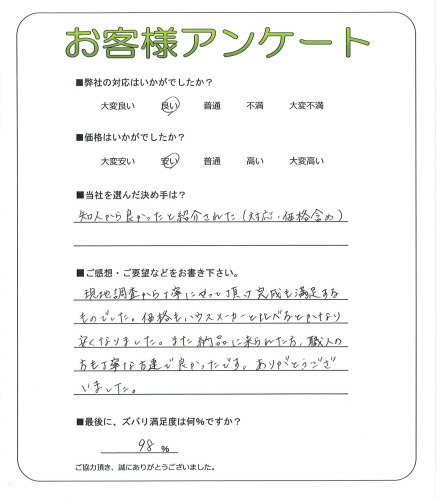 お客様アンケート
■弊社の対応はいかがでしたか？
大変良い　良い　普通　不満　大変不満
■価格はいかがでしたか？
大変安い　安い　普通　高い　大変高い
■当社を選んだ決め手は？
知人から良かったと紹介された（対応・価格含め）
■ご感想・ご要望などをお書き下さい。
現地調査から丁寧にやって頂き完成も満足する
ものでした。価格もハウスメーカーと比べるとかなり
安くなりました。また納品に来られた方、職人の
方も丁寧な方達で良かったです。ありがとうござ
いました。
■最後に、ズバリ満足度は何％ですか？
98 ％
ご協力頂き、誠にありがとうございました。